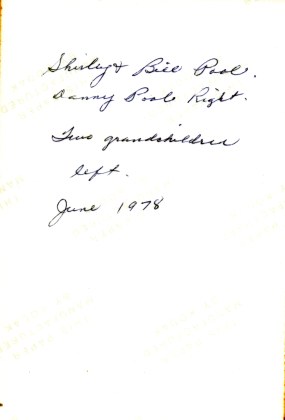 Shirley & Bill Pool.
Danny Pool Right.
Two grandchildren
left.
June 1978